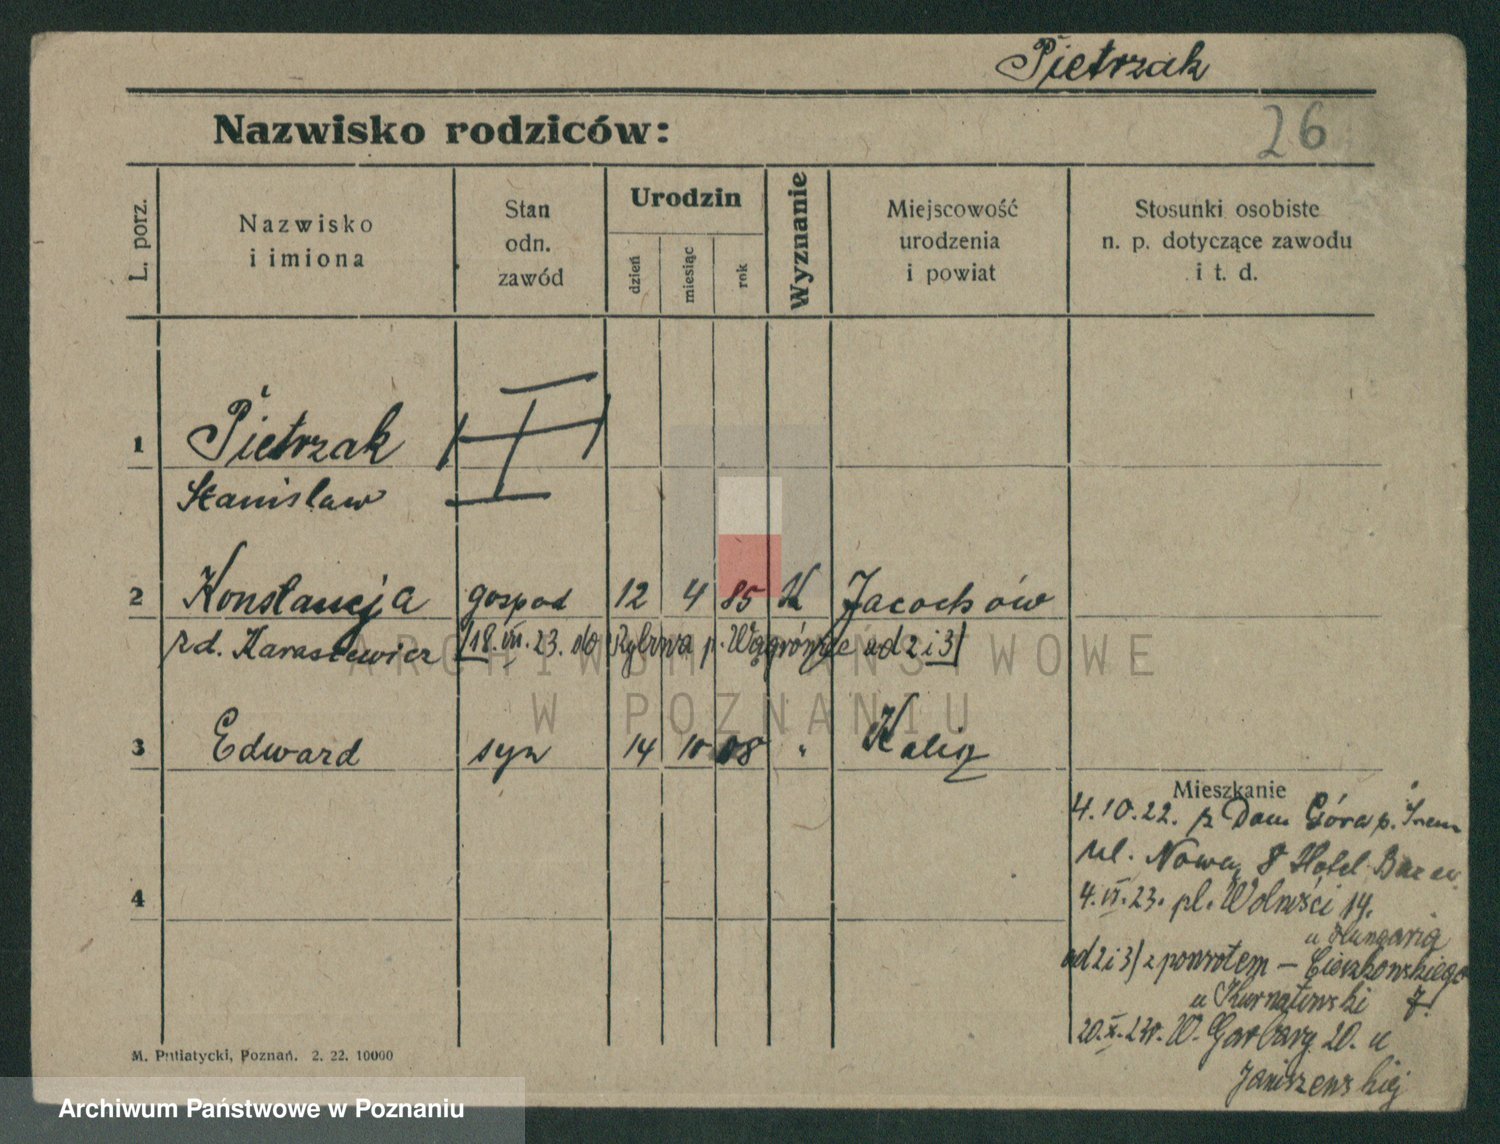 Pietrzak
26
Nazwisko rodziców:
L. porz.
Nazwisko
i imiona
Stan
odn.
zawód
Urodzin
dzień
miesiąc
rok
Wyznanie
Miejscowość
urodzenia
i powiat
Stosunki osobiste
n. p. dotyczące zawodu
i t. d.
1 Pietrzak
Stanisław
2 Konstancja gospod 12 4 85 K Jacochów
rd. Karasiewicz /18.VII.23. do p. Wągrówiec ad 2 i 3/
3 Edward syn 14 10 08 " Kalisz
4
Mieszkanie
4.10.22. z Dom Góra p.
ul. Nowa 8 Hotel
4.VI.23. pl. Wolności 14.
u Hungaria
ad 2 i 3/ z powrotem – Cieszkowskiego
u Kurnatowski 7.
20.X.24. W. Garbary 20. u
Janiszewskiej
M. Putiatycki, Poznań. 2. 22. 10000
ARCHIWUM PAŃSTWOWE
W POZNANIU
Archiwum Państwowe w Poznaniu